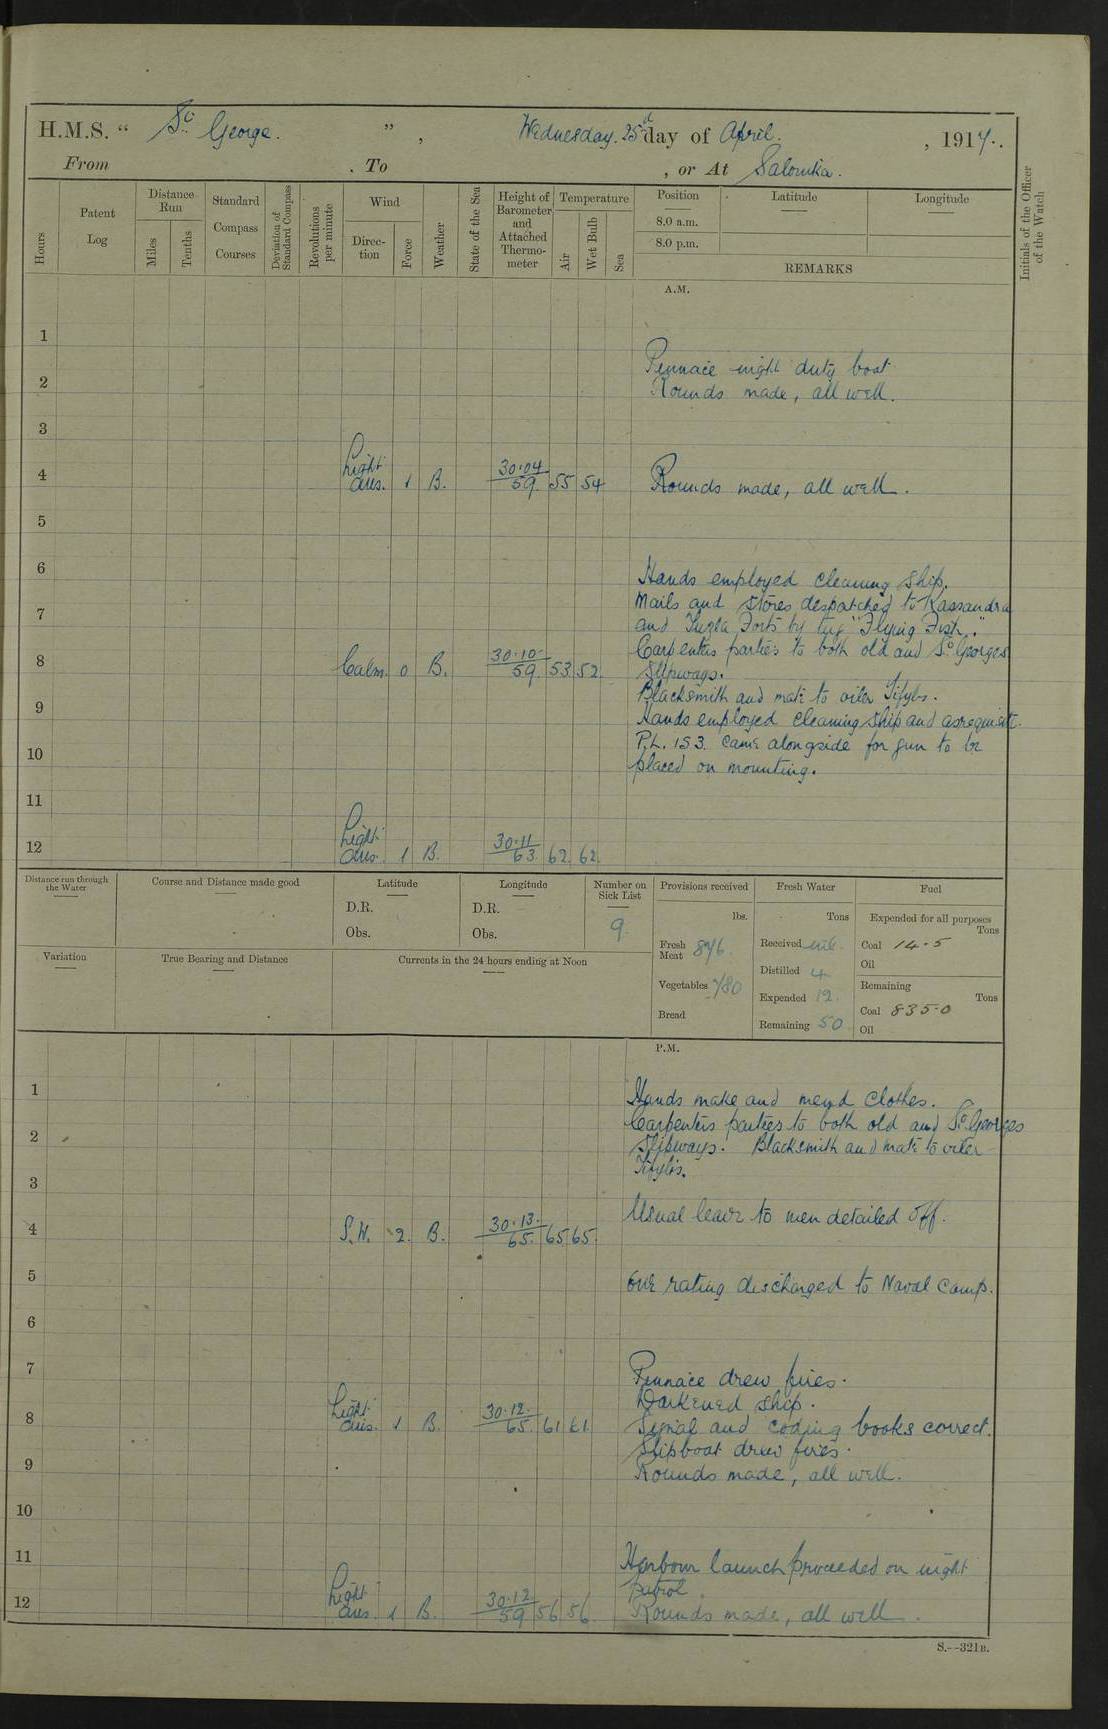 H.M.S. " St George. " , Wednesday. 25th day of April. , 1917.
From . To , or At Salonika.
Hours
Patent Log
Distance Run
Miles
Tenths
Standard Compass Courses
Deviation of Standard Compass
Revolutions per minute
Wind
Direction
Force
Weather
State of the Sea
Height of Barometer and Attached Thermometer
Temperature
Air
Wet Bulb
Sea
Position
8.0 a.m.
8.0 p.m.
Latitude
Longitude
REMARKS
Initials of the Officer of the Watch
A.M.
1
Pennace night duty boat
2 Rounds made, all well.
3
4 Light airs. 1 B. 30.04 59 55 54 Rounds made, all well.
5
6 Hands employed cleaning ship.
Mails and stores despatched to Kassandra
7 and Tuzla Forts by tug "Flying Fish."
Carpenters parties to both old and St Georges
8 Calm. 0 B. 30.10 59 53 52 Slipways.
Blacksmith and mate to oiler
9 Hands employed cleaning ship and as requisite.
P.L. 153. came alongside for gun to be
10 placed on mounting.
11
12 Light airs. 1 B. 30.11 63 62 62
Distance run through the Water
Course and Distance made good
Latitude
D.R.
Obs.
Longitude
D.R.
Obs.
Number on Sick List
9.
Provisions received
lbs.
Fresh Meat 846.
Vegetables 780
Bread
Fresh Water
Tons
Received nil.
Distilled 4
Expended 12.
Remaining 50
Fuel
Expended for all purposes
Tons
Coal 14.5
Oil
Remaining
Tons
Coal 835.0
Oil
Variation
True Bearing and Distance
Currents in the 24 hours ending at Noon
P.M.
1 Hands make and mend clothes.
Carpenters parties to both old and St. Georges
2 Slipways. Blacksmith and mate to oiler
3
Usual leave to men detailed off.
4 S.W. 2. B. 30.13. 65. 65 65.
5 One rating discharged to Naval Camp.
6
7 Pennace drew fires.
Darkened ship.
8 Light airs. 1 B. 30.12. 65. 61 61. Signal and coding books correct.
Slipboat drew fires.
9 Rounds made, all well.
10
11 Harbour launch proceeded on night
patrol.
12 Light airs. 1 B. 30.12 59 56 56 Rounds made, all well.
S.—321B.